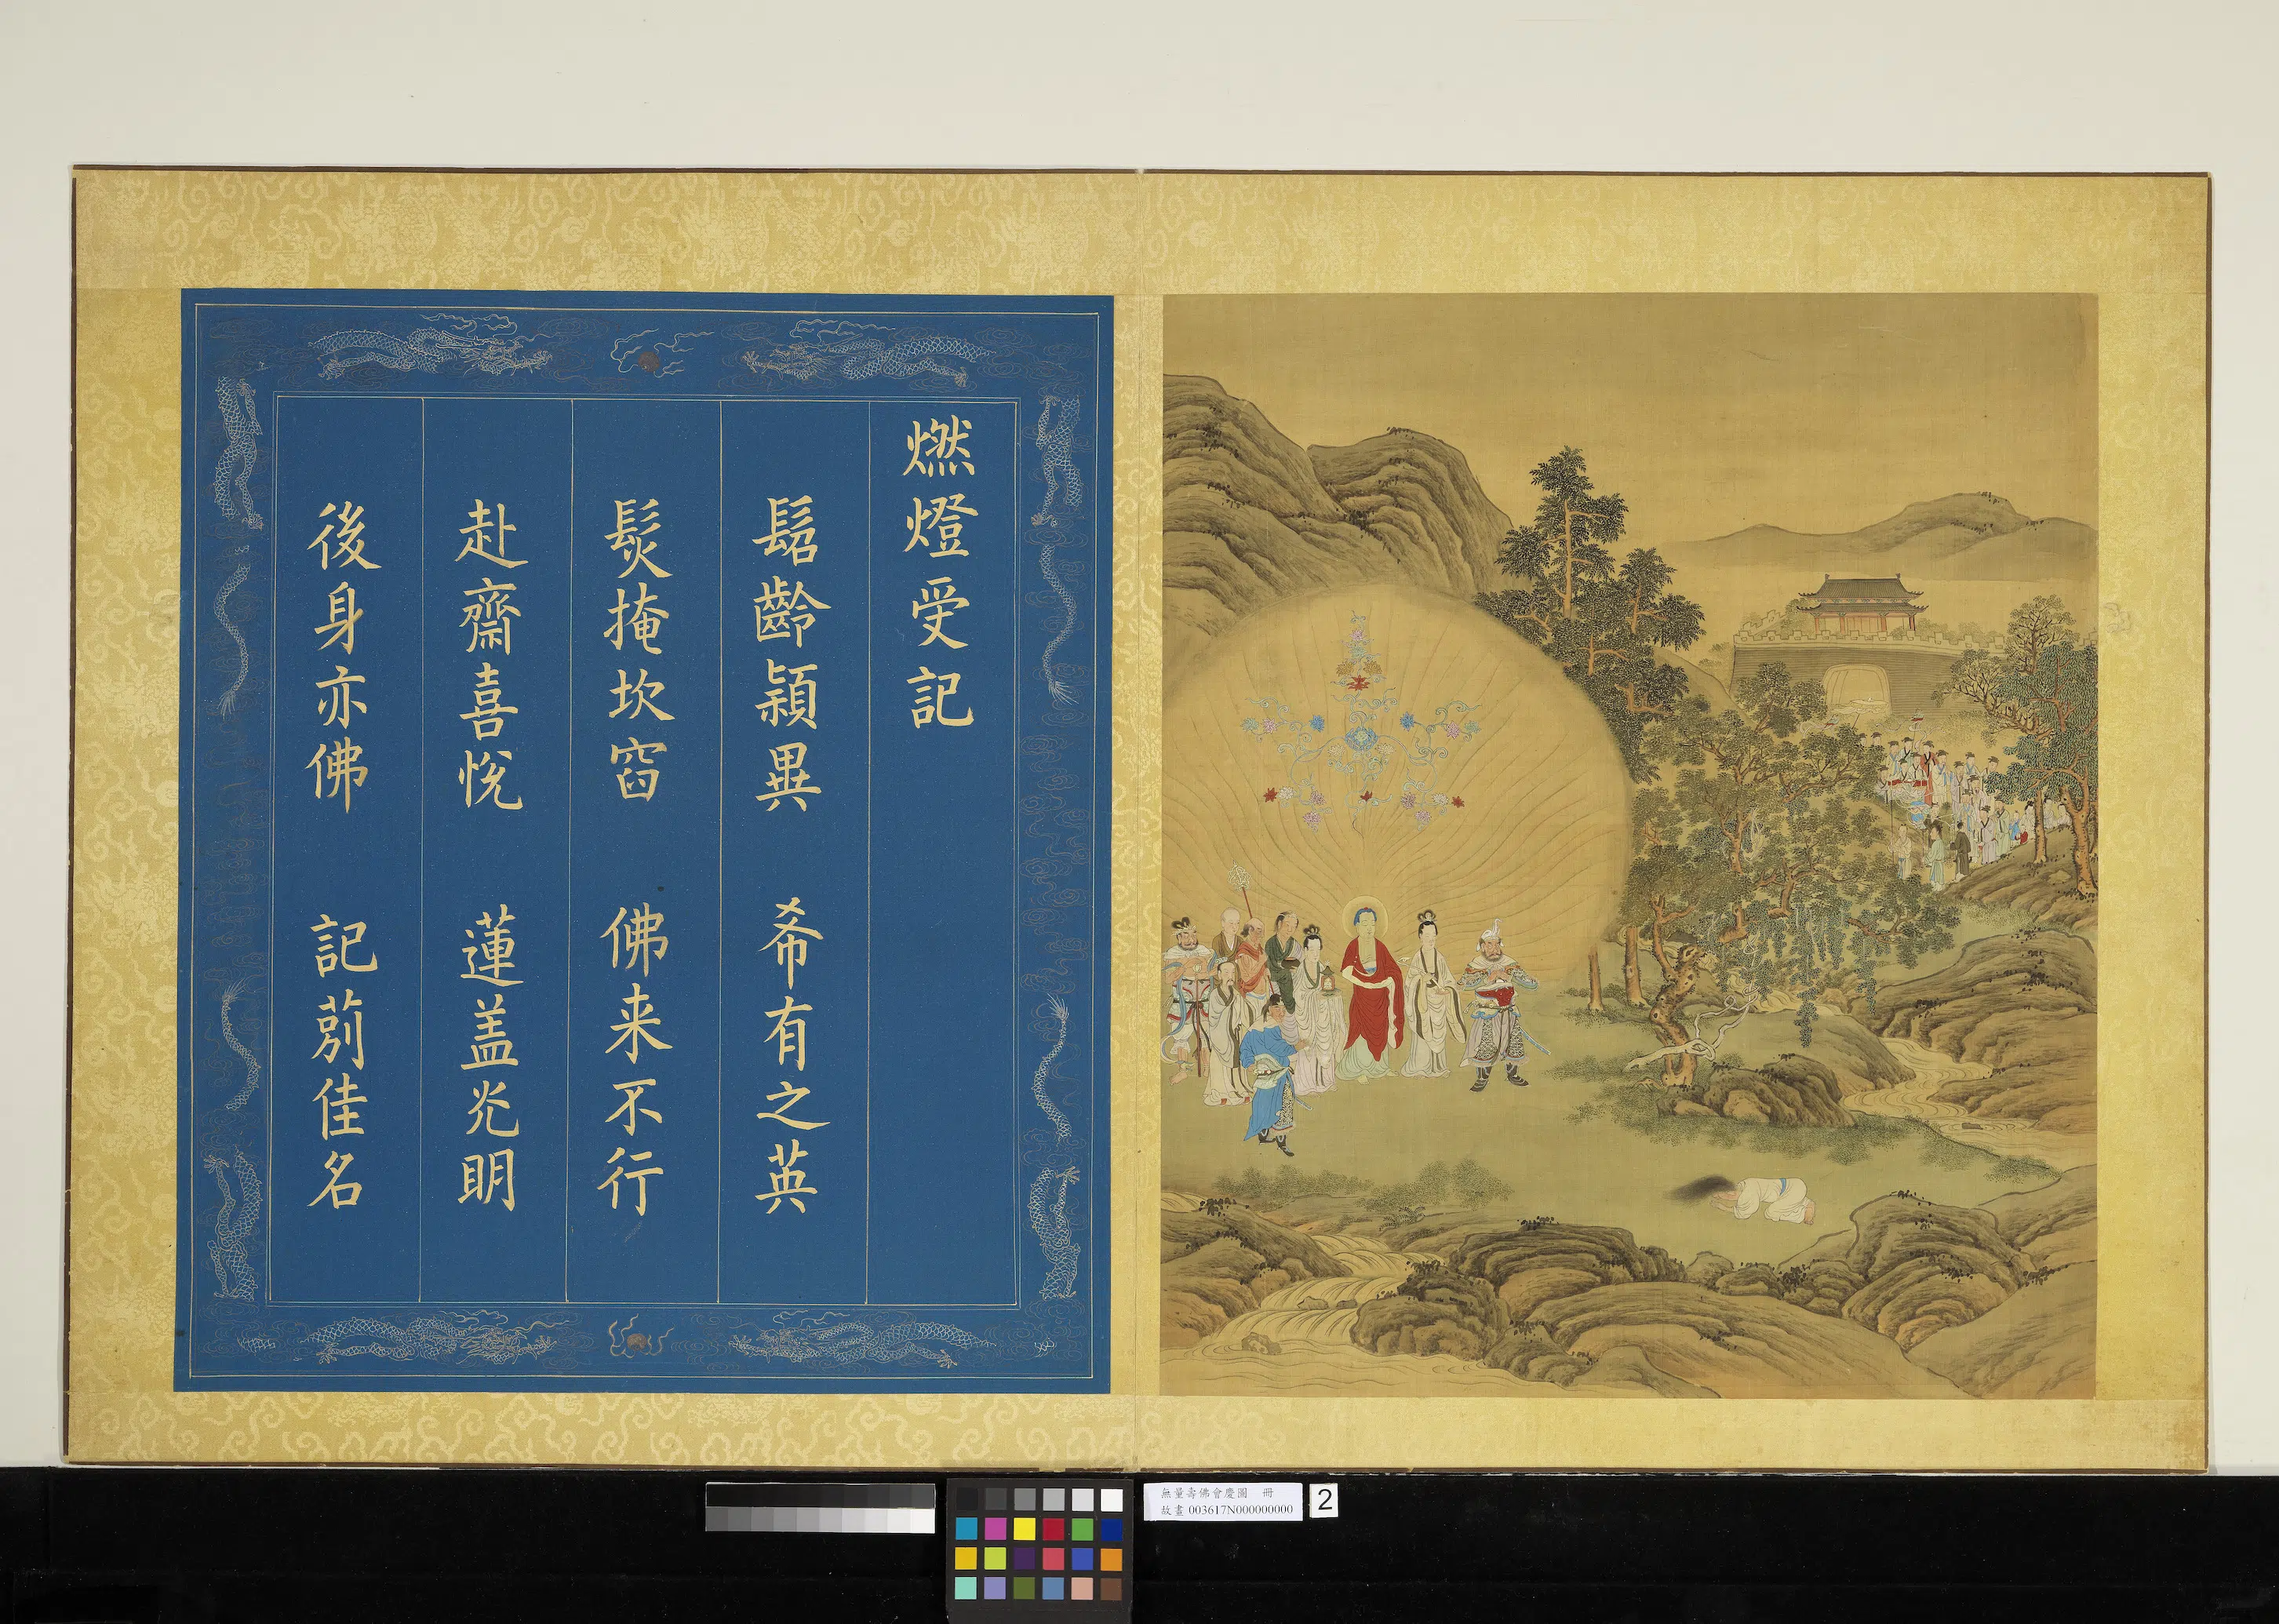 燃燈受記
髫齡頴異 希有之英
髮掩坎窞 佛来不行
赴齋喜悅 蓮盖光明
後身亦佛 記莂佳名
無量壽佛會慶圖 冊
故畫 003617N000000000
2